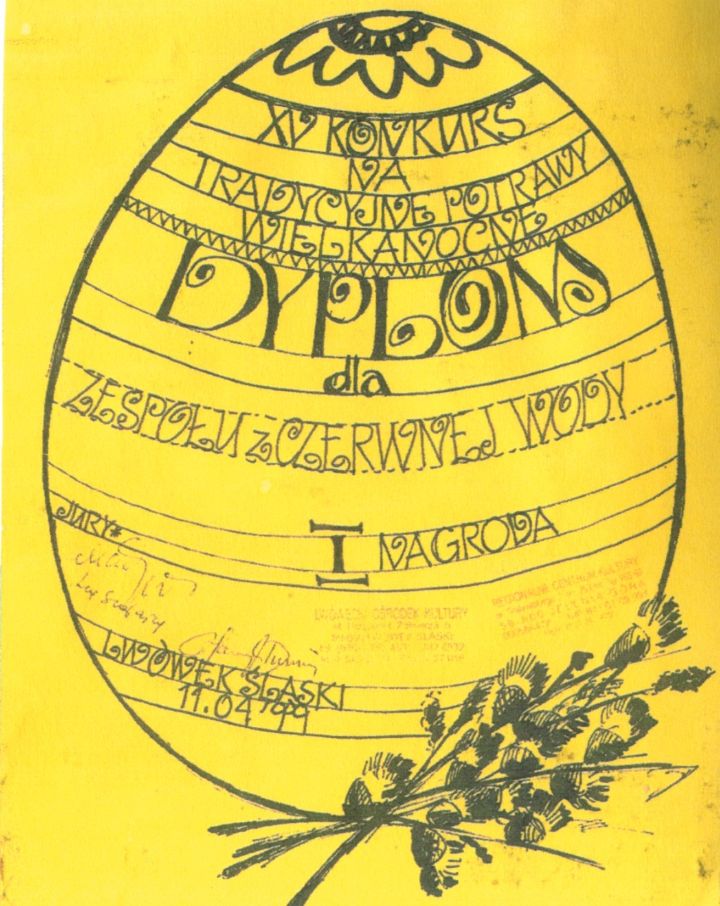 XV KONKURS
NA
TRADYCYJNE POTRAWY
WIELKANOCNE
DYPLOM
dla
ZESPOŁU Z CZERWNEJ WODY
I NAGRODA
JURY:
LWÓWECKI OŚRODEK KULTURY
REGIONALNE CENTRUM KULTURY
LWÓWEK ŚLĄSKI
11.04 '99